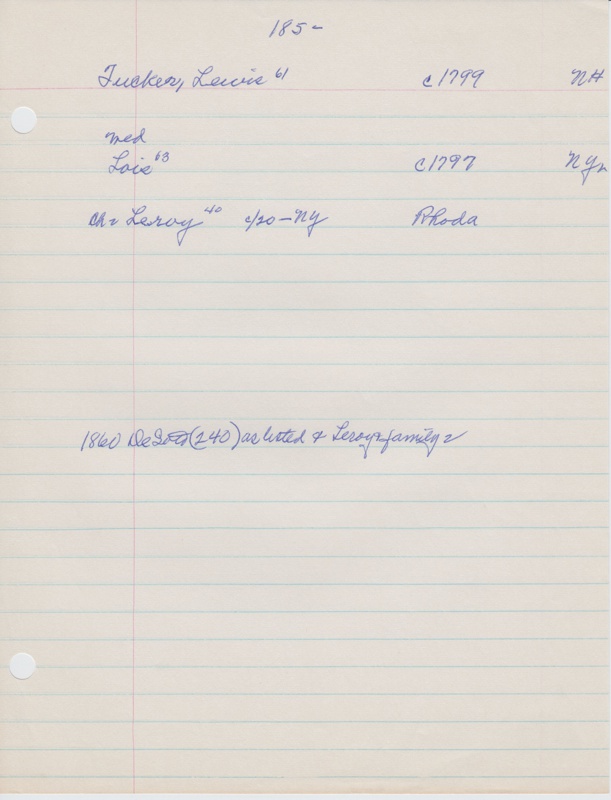 185-
Tucker, Lewis 61 c1799 NH
med
Lois 63 c1797 NYn
Ch= Leroy 40 c/20-NY Rhoda
1860 DeSoto (240) as listed & Leroy & family =